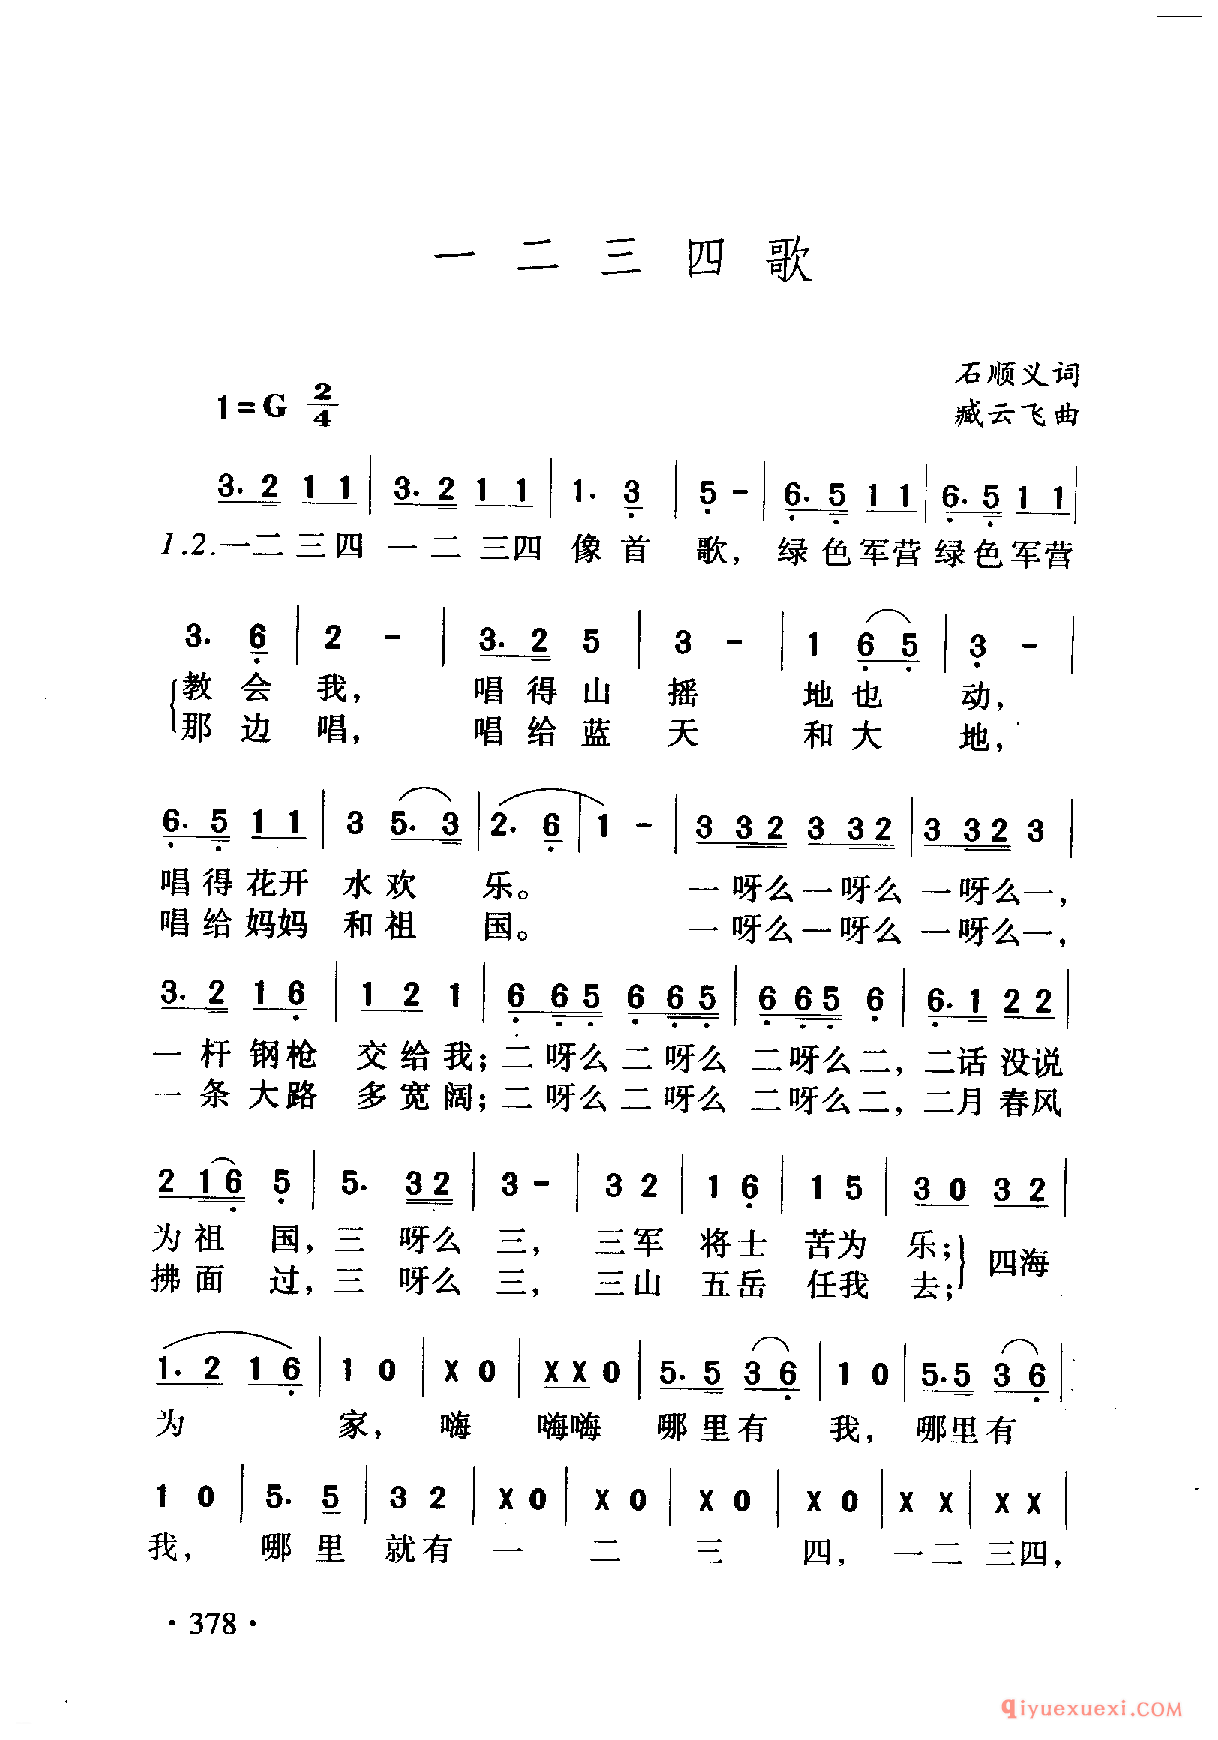 一二三四歌
石顺义词
1=G 2/4
臧云飞曲
3. 2 1 1 | 3. 2 1 1 | 1. 3 | 5 - | 6. 5 1 1 | 6. 5 1 1 |
1.2.一二三四 一二三四 像首 歌，绿色军营绿色军营
3. 6 | 2 - | 3. 2 5 | 3 - | 1 6 5 | 3 - |
教会我，唱得山摇 地也 动，
那边唱，唱给蓝天 和大 地，
6. 5 1 1 | 3 5. 3 | 2. 6 | 1 - | 3 3 2 3 3 2 | 3 3 2 3 |
唱得花开 水欢 乐。 一呀么一呀么 一呀么一，
唱给妈妈 和祖 国。 一呀么一呀么 一呀么一，
3. 2 1 6 | 1 2 1 | 6 6 5 6 6 5 | 6 6 5 6 | 6. 1 2 2 |
一杆钢枪 交给我；二呀么二呀么 二呀么二，二话没说
一条大路 多宽阔；二呀么二呀么 二呀么二，二月春风
2 1 6 5 | 5. 3 2 | 3 - | 3 2 | 1 6 | 1 5 | 3 0 3 2 |
为祖 国，三 呀么 三， 三军 将士 苦为 乐；四海
拂面 过，三 呀么 三， 三山 五岳 任我 去；
1. 2 1 6 | 1 0 | X 0 | X X 0 | 5. 5 3 6 | 1 0 | 5. 5 3 6 |
为 家，嗨 嗨嗨 哪里有 我，哪里有
1 0 | 5. 5 | 3 2 | X 0 | X 0 | X 0 | X 0 | X X | X X |
我， 哪里 就有 一 二 三 四， 一二 三四，
·378·
qiyuexuexi.COM